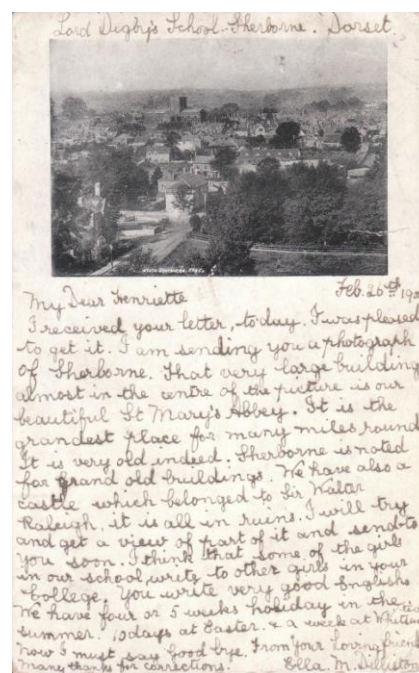 Lord Digby's School - Sherborne. Dorset
Feb. 26th
My Dear Henriette
I received your letter, today. I was pleased
to get it. I am sending you a photograph
of Sherborne. That very large building
almost in the centre of the picture is our
beautiful St Mary's Abbey. It is the
grandest place for many miles round
It is very old indeed. Sherborne is noted
for grand old buildings. We have also a
castle which belonged to Sir Walter
Raleigh, it is all in ruins. I will try
and get a view of part of it and send to
you soon. I think that some of the girls
in our school, write to other girls in your
College. You write very good English
We have four or 5 weeks holiday in the
summer. 10 days at Easter. & a week at
Now I must say Good bye. From Your Loving friend
Many thanks for corrections. Ella. M.